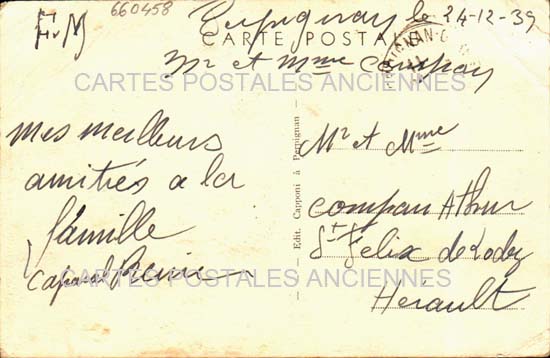 660458
F.M
Perpignan le 24-12-39
CARTE POSTALE
Mr et Mme Compan
CARTES POSTALES ANCIENNES
Mes meilleurs
amitiés a la
famille
Caporal
Edit. Capponi à Perpignan
Mr et Mme
Compan Athur
St Felix de Lodez
CARTES POSTALES ANCIENNES
Hérault